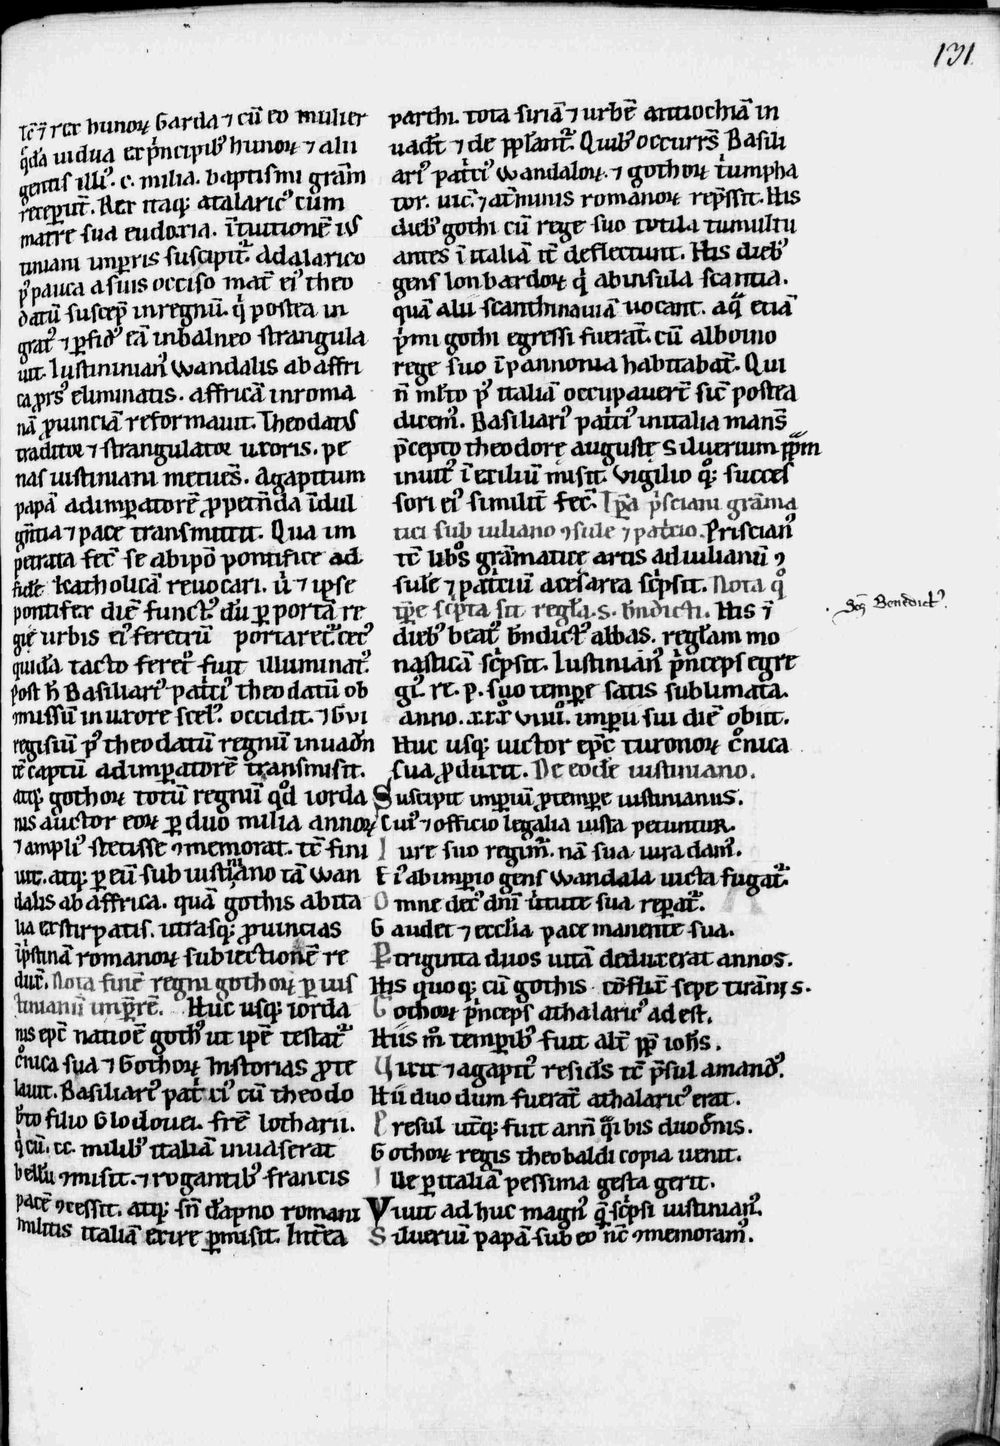 131
Tc̄ ⁊ rex hunoꝝ Garda ⁊ cū eo mulier
q̄dā uidua ex p̄ncipibꝰ hunoꝝ ⁊ alii
gentis illiꝰ. c. milia. baptismi gram̄
receper̄t. Rex itaqꝫ atalaricꝰ cum
matre sua eudoxia. ī tuitionē iꝰ
tiniani imꝑris suscipit᷑. Adalarico
pꝰ pauca a suis occiso mat̄ eiꝰ theo
datū suscep̄ in regnū. qͥ postea in
gratꝰ ⁊ ꝑfidꝰ eā in balneo strangula
uit. Iustinianꝰ wandalis ab affri
ca prorsꝰ eliminatis. affricā in roma
nā ꝓuinciā reformauit. Theodatꝰ
traditor ⁊ strangulator uxoris. pe
nas iustiniani metuēs. Agapitum
papā ad imꝑatorē ꝓ petēda īdul
gētia ⁊ pace transmittit. Qua im
petrata fec̄ se ab ipō pontifice ad
fidē katholicā reuocari. ⁊ ipse
pontifex diē functꝰ dū ꝑ portā re
gię urbis eiꝰ feretrū portaret᷑ cecꝰ
quidā tacto feret̄ fuit illuminatꝰ.
Post h̄ Basiliariꝰ patͥciꝰ theodatū ob
missū in uxore scelꝰ occidit. ⁊ Gui
regisiū pꝰ theodatū regnū inuadēn
tē captū ad imꝑatorē transmisit.
atqꝫ gothoꝝ totū regnū qd̄ iorda
nis auctor eoꝝ ꝑ duo milia annoꝝ
⁊ ampliꝰ stetisse ꝯmemorat. tc̄ fini
uit. atqꝫ ꝑ eū sub iustiniano tā wan
dalis ab affrica. quā gothis ab ita
lia extirpatis. utrasqꝫ ꝓuincias
ī pͥstinā romanoꝝ subiectionē re
dux̄. Nota finē regni gothoꝝ ꝑ ius
tinianū imꝑrē. Huc usqꝫ iorda
nis epc̄ natiōe gothꝰ ut ipē testat᷑
cͦnica sua ⁊ Gothoꝝ historias ꝓte
lauit. Basiliariꝰ patͥciꝰ cū theodo
bͭo filio Glodouei. frē lotharii.
qͥ cū. cc. milibꝰ italiā inuaserat
bellū ꝯmisit. ⁊ rogantibꝰ francis
pacē ꝯcessit. atqꝫ sn̄ dāpno romani
militis italiā exire ꝑmisit. Intēa
parthi. tota siriā ⁊ urbē antiochiā in
uadt̄ ⁊ de pplāt᷑. Quibꝰ occurrēs Basili
ariꝰ patͥciꝰ wandaloꝝ. ⁊ gothoꝝ tͥumpha
tor. uic̄ ⁊ a tͥminis romanoꝝ repssit. His
diebꝰ gothi cū rege suo totila tumultu
antes ī italiā tc̄ deflectunt. His diebꝰ
gens lonbardoꝝ qͥ ab insula scantia.
quā alii scanthinauiā uocant. a qͣ etiā
pͥmi gothi egressi fuerāt. cū alboino
rege suo ī pannonia habitabāt. Qui
n̄ mlͭo pꝰ italiā occupauerēt sic̄ postea
dicemꝰ. Basiliariꝰ patͥciꝰ in italia manēs
p̄cepto theodore augustę Siluerium ppm
inuitꝰ ī exiliū misit. Vigilio qꝫ succes
sori eiꝰ similiꝰ fec̄. Ip̄a pͥsciani gram̄a
tici sub iuliano ꝯsule ⁊ patͥcio. Priscianꝰ
tc̄ libͦs gram̄atice artis ad iulianū ꝯ
sulē ⁊ patͥciū a cesarea scͥpsit. Nota qͦ
tp̄e scͥpta sit regla. S. bn̄dicti. His ⁊
diebꝰ beatꝰ bn̄dictꝰ abbas. reglam mo
nasticā scͥpsit. Iustinianꝰ pͥnceps egre
giꝰ. re. p. suo tempore satis sublimata.
anno. xxxͦ viiiiͦ. imperii sui diē obiit.
Huc usqꝫ uictor epc̄ turonoꝝ cͦnica
sua ꝓduxit. De eodē iustiniano.
Suscipit imperiū ꝓ tempore iustinianus.
Cuiꝰ ⁊ officio legalia iusta petuntur.
Iure suo regim̄. nā sua iura damꝰ.
Eiꝰ ab imperio gens wandala uicta fugat᷑.
Omne decꝰ dn̄i uͥtute sua reparat᷑.
Gaudet ⁊ ecclīa pace manente sua.
P triginta duos uitā deduxerat annos.
His quoqꝫ cū gothis cōfluc̄ sepe tirānis.
Gothoꝝ pͥnceps athalaricꝰ adest.
Hiis m̄ temporibꝰ fuit alt̄ pp̄ iohs̄.
Vixit ⁊ agapitꝰ residēs tc̄ p̄sul amandꝰ.
Hii duo dum fuerāt athalaricꝰ erat.
Presul utͥqꝫ fuit ann̄ qͣsi bis duodēnis.
Gothoꝝ regis theobaldi copia uenit.
Ille ꝑ italiā pessima gesta gerit.
Viuit ad huc magnꝰ qͥ scͥpsi iustinianꝰ.
Siluerū papā sub eo nc̄ ꝯmemoramꝰ.
Scs̄ Benedictꝰ.